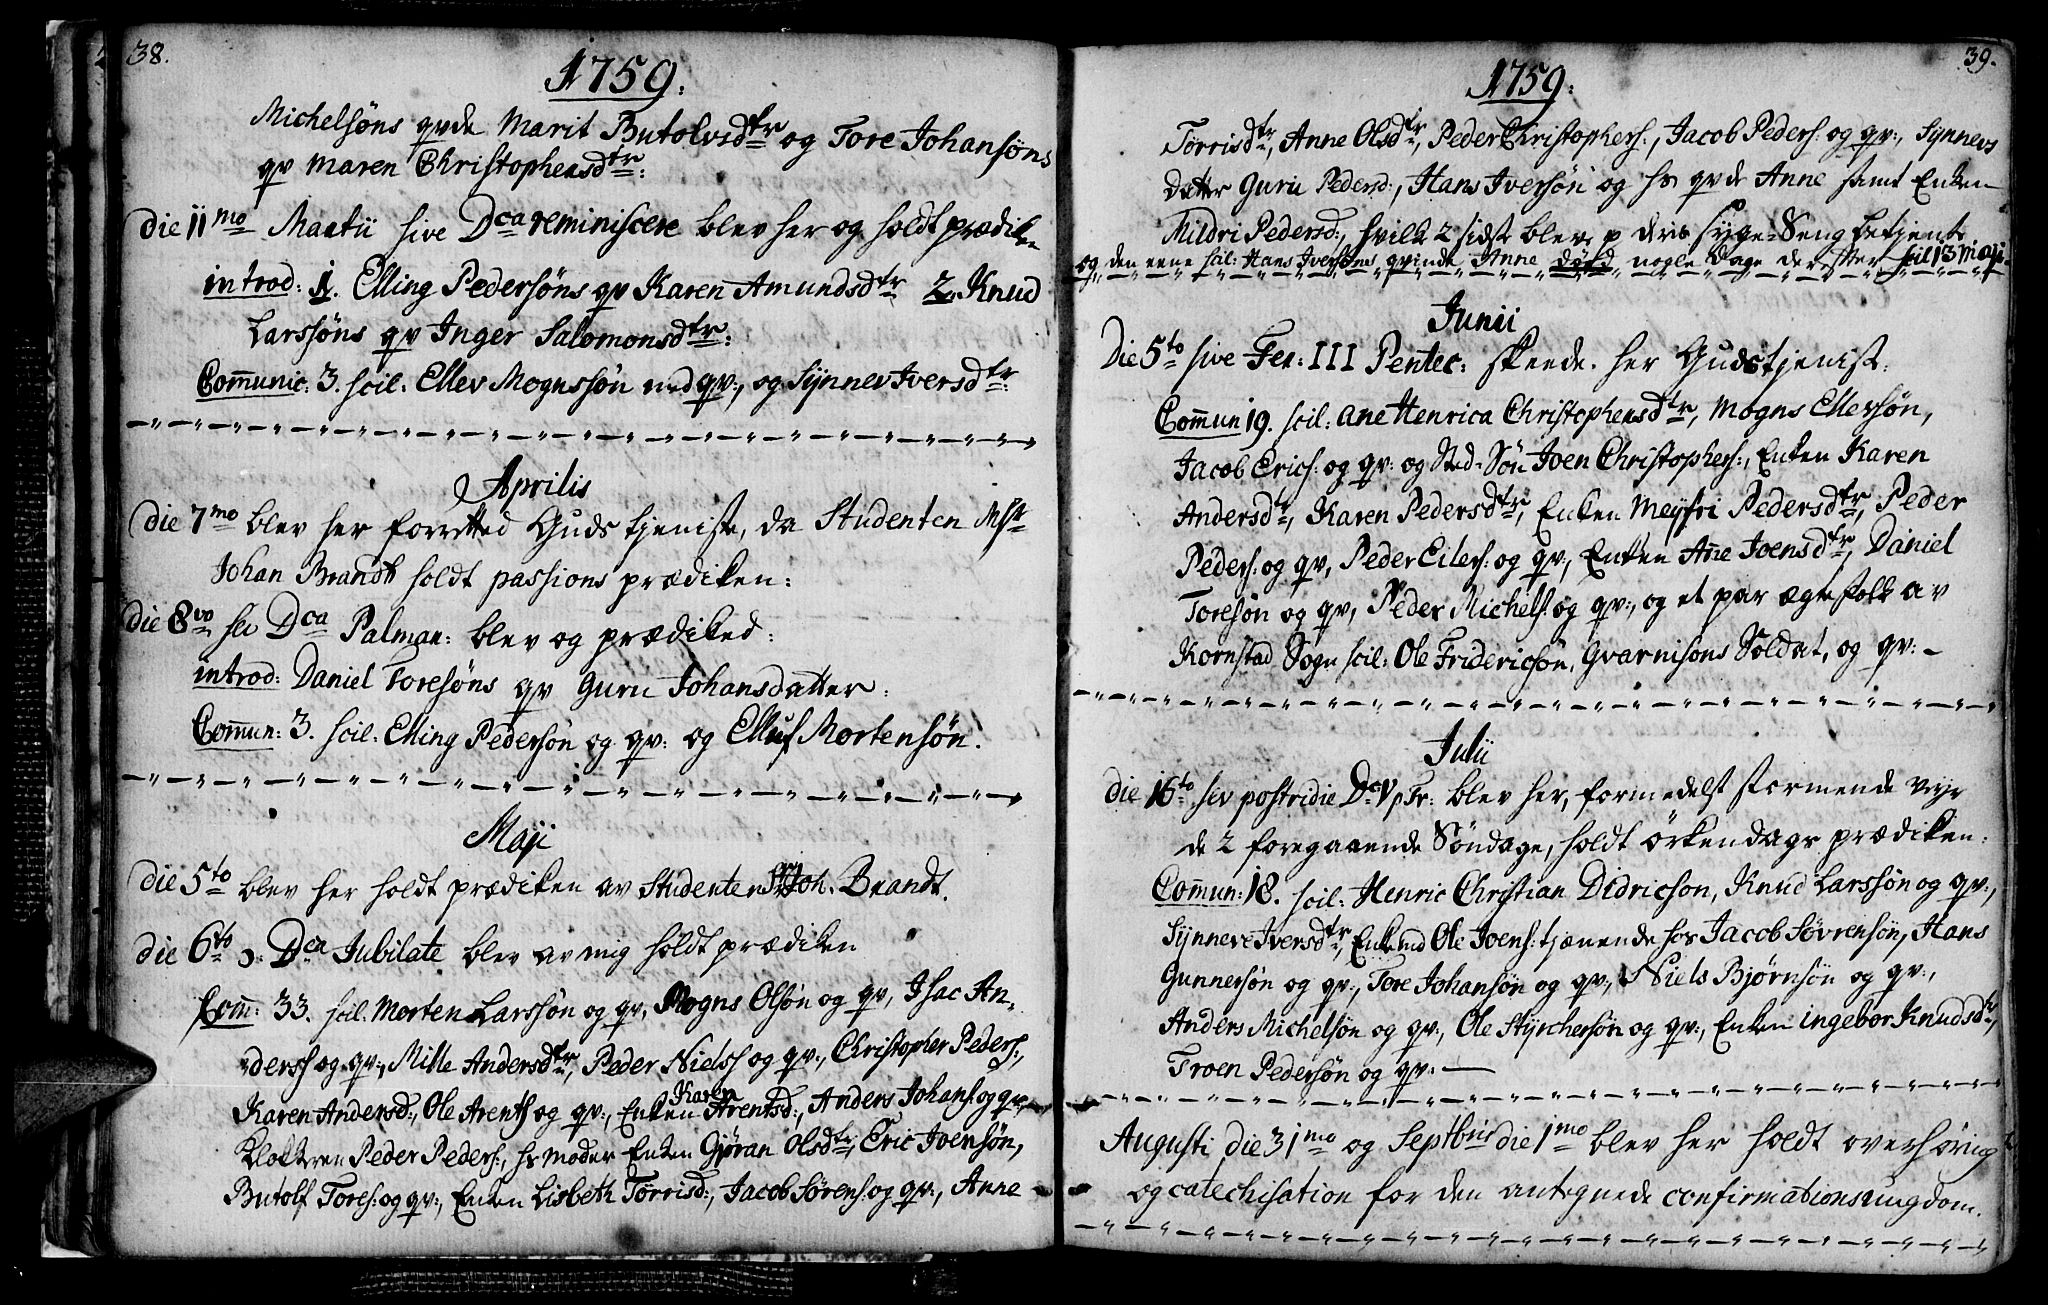 38.
1759.
Michelsøns qvde Marit Butolvsdtr og Tore Johansøns
qv Maren Christophersdtr:
Die 11mo Martii sive Dca reminiscere blev her og holdt prædiken
introd: 1. Elling Pedersøns qv Karen Amundsdtr 2. Knud
Larssøns qv Inger Salomonsdtr:
Communic: 3. scil: Ellev Mognssøn med qv:, og Synnev Iversdtr:
Aprilis
Die 7mo blev her forretted Guds tjeniste, da Studenten Msr
Johan Brandt holdt passions prædiken:
die 8vo seu Dca Palmar: blev og prædiked:
introd: Daniel Toresøns qv Guru Johansdatter:
Commun: 3. scil: Elling Pedersøn og qv: og Elluf Mortensøn.
Maji
Die 5to blev her holdt prædiken av Studenten Joh. Brandt.
die 6to Dca Jubilate blev av mig holdt prædiken
Comm: 33. scil: Morten Larssøn og qv, Mogns Olsøn og qv, Isac An-
derss og qv:, Mille Andersdtr, Peder Nielss og qv:, Christopher Peders:,
Karen Andersd:, Ole Arents og qv:, Enken Karen Arentsd:, Anders Johans: og qv,
Klokkeren Peder Peders:, hs moder Enken Gjøran Olsdtr, Eric Joensøn,
Butolf Tores: og qv:, Enken Lisbeth Tørrisd:, Jacob Sørens: og qv:, Anne
39.
1759.
Tørrisdtr, Anne Olsdtr, Peder Christophers:, Jacob Peders: og qv:, Synnevs
datter Guru Pedersd:, Hans Iversøn og hs qvde Anne samt Enken
Mildri Pedersd:, hvilke 2 sidst blev p deris syge-Seng betjent
og den eene scil: Hans Iversøns qvinde Anne døde nogle Dage derefter scil 13 Maji
Junii
Die 5to sive Fer: III Pentec: skeede her Gudstjenist:
Commun 19. scil: Ane Henrica Christophersdtr, Mogns Ellersøn,
Jacob Erics: og qv: og Sted-Søn Joen Christophers:, Enken Karen
Andersdtr, Karen Pedersdtr, Enken Meyfri Pedersdtr, Peder
Peders: og qv, Peder Eilers: og qv, Enken Anne Joensdtr, Daniel
Toresøn og qv, Peder Michels: og qv:, og et par ægtefolk av
Kornstad Sogn scil: Ole Fridericsøn, Gvarnisons Soldat, og qv: –
Julii
Die 16to sev postridie Dc V p Tr: blev her, formedelst stormende vejr
de 2 foregaaende Søndage, holdt örkendags prædiken:
Commun: 18. scil: Henric Christian Didricson, Knud Larssøn og qv:,
Synneve Iversdtr, Ole Joens: tjænende hos Jacob Søvrensøn, Hans
Gunnersøn og qv:, Tore Johansøn og qv:, Niels Bjørnsøn og qv:,
Anders Michelsøn og qv:, Ole Styrchersøn og qv:, Enken Ingebor Knudsdtr,
Troen Pedersøn og qv: —
Augusti die 31mo og Septbris die 1mo blev her holdt overhøring
og catechisation for den antegnede confirmationsungdom.